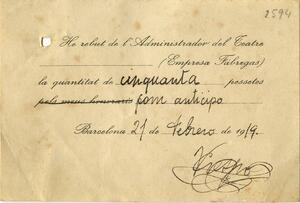 2594
He rebut de l'Administrador del Teatre
(Empresa Fàbregas)
la quantitat de cinquanta pessetes
pels meus honoraris com anticipo
Barcelona 21 de Febrero de 1919.